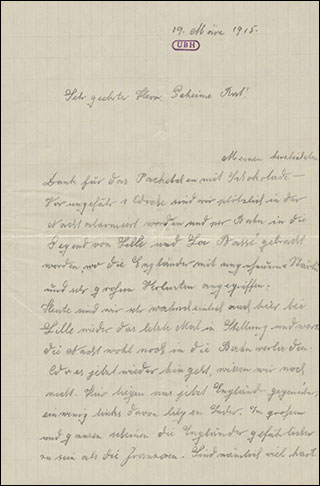 19. März 1915.
UBH
Sehr geehrter Herr Geheime Rat!
Meinen herzlichsten
Dank für das Packetchen mit Schokolade –
Vor ungefähr 1 Woche sind wir plötzlich in der
Nacht alarmiert worden und per Bahn in die
Gegend von Lille und La Bassé gebracht
worden, wo die Engländer mit ungeheurer
und sehr großen Verlusten angegriffen.
Heute sind wir sehr wahrscheinlich auch hier bei
Lille wieder das letzte Mal in Stellung und
die Nacht wohl noch in die Bahn verladen.
Wo es jetzt wieder hingeht, wissen wir noch
nicht. Hier liegen uns jetzt Engländer gegenüber,
ein wenig links davon liegen Inder. Im großen
und ganzen scheinen die Engländer gefährlicher
zu sein als die Franzosen. Sind nämlich viel